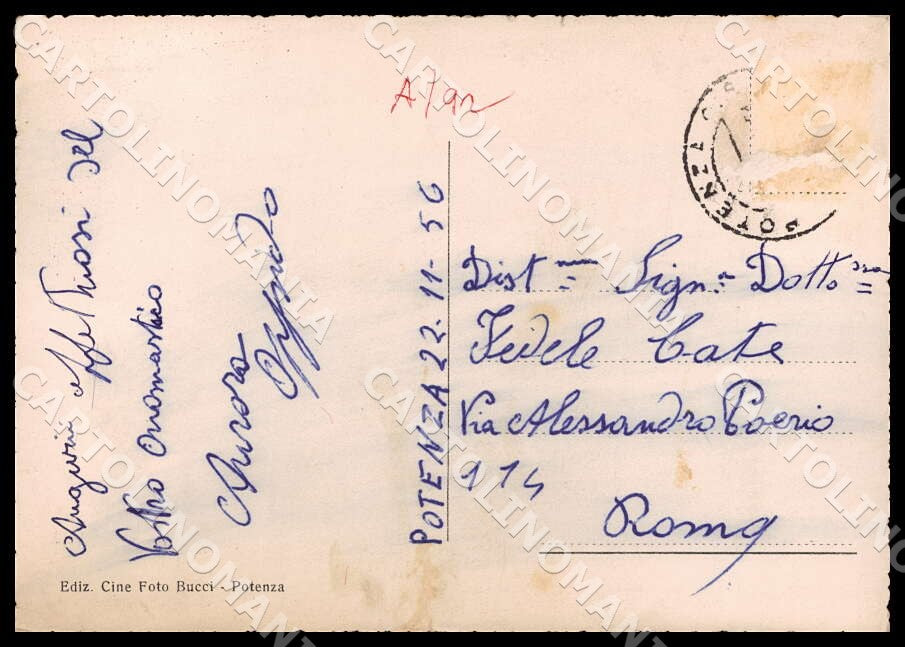 A/92
POTENZA
Auguri affettuosi del
Vostro onomastico
Aurora
POTENZA 22-11-56
Dist mo Sign.r Dott. ssa
Fedele Cate
Via Alessandro Poerio
114
Roma
Ediz. Cine Foto Bucci - Potenza
CARTOLINOMANIA